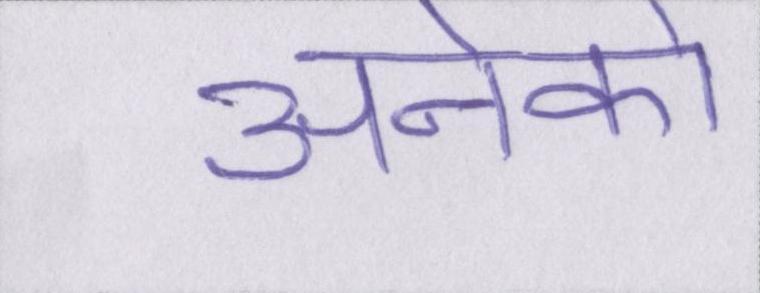 अनेको